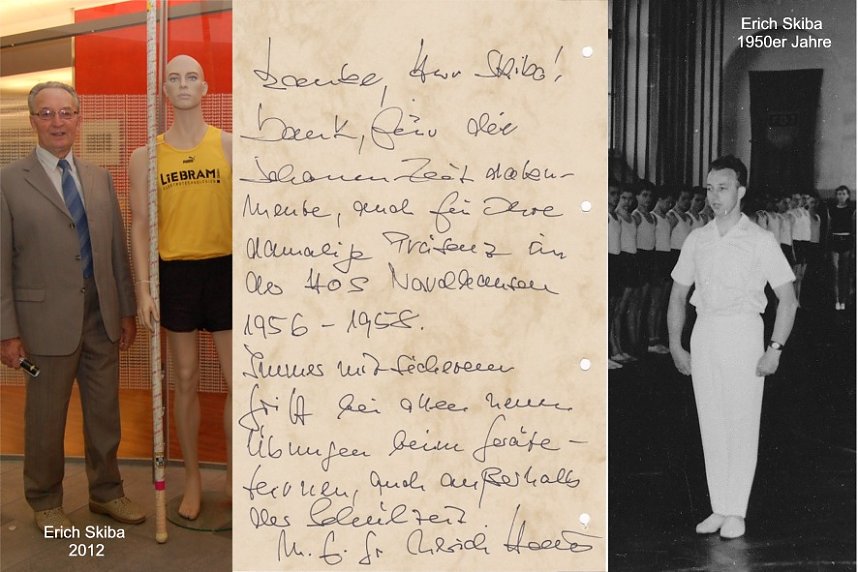 Erich Skiba
2012
LIEBRAM!
Danke, Herr Skiba!
Dank, für die
Doku-
mente, auch für Ihre
damalige Präsenz in
der HOS Nordhausen
1956 - 1958.
Immer mit sicherem
Griff bei allen neuen
Übungen beim Geräte-
turnen, auch außerhalb
der Schulzeit.
M. f. G. Ulrich
Erich Skiba
1950er Jahre